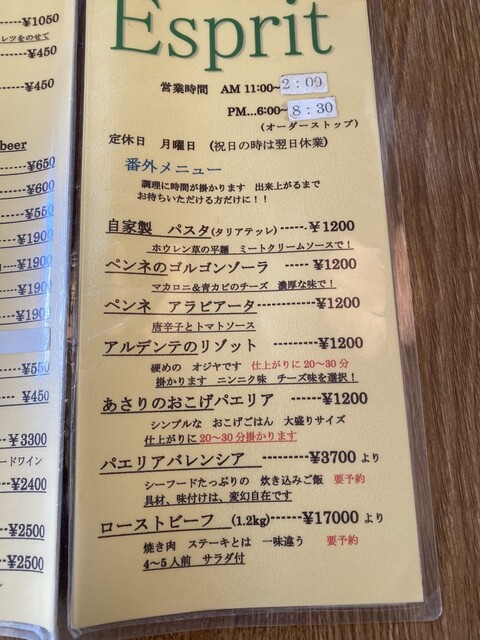 ¥1050
レツをのせて
¥450
¥450
beer
¥650
¥600
¥550
¥1900
¥1900
¥1900
¥1900
¥550
¥450
¥3300
ードワイン
¥2400
¥2500
¥2500
Esprit
営業時間 AM 11:00~2:00
PM...6:00~8:30
(オーダーストップ)
定休日 月曜日 (祝日の時は翌日休業)
番外メニュー
調理に時間が掛かります 出来上がるまで
お待ちいただける方だけに!!
自家製 パスタ(タリアテッレ)-----¥1200
ホウレン草の平麺 ミートクリームソースで!
ペンネのゴルゴンゾーラ -----¥1200
マカロニ&青カビのチーズ 濃厚な味で!
ペンネ アラビアータ------------¥1200
唐辛子とトマトソース
アルデンテのリゾット ---------¥1200
硬めの オジヤです 仕上がりに20~30分
掛かります ニンニク味 チーズ味を選択!
あさりのおこげパエリア ------¥1200
シンプルな おこげごはん 大盛りサイズ
仕上がりに20~30分掛かります
パエリアバレンシア ---------¥3700より
シーフードたっぷりの 炊き込みご飯 要予約
具材、味付けは、変幻自在です
ローストビーフ (1.2kg)------¥17000より
焼き肉 ステーキとは 一味違う 要予約
4~5人前 サラダ付